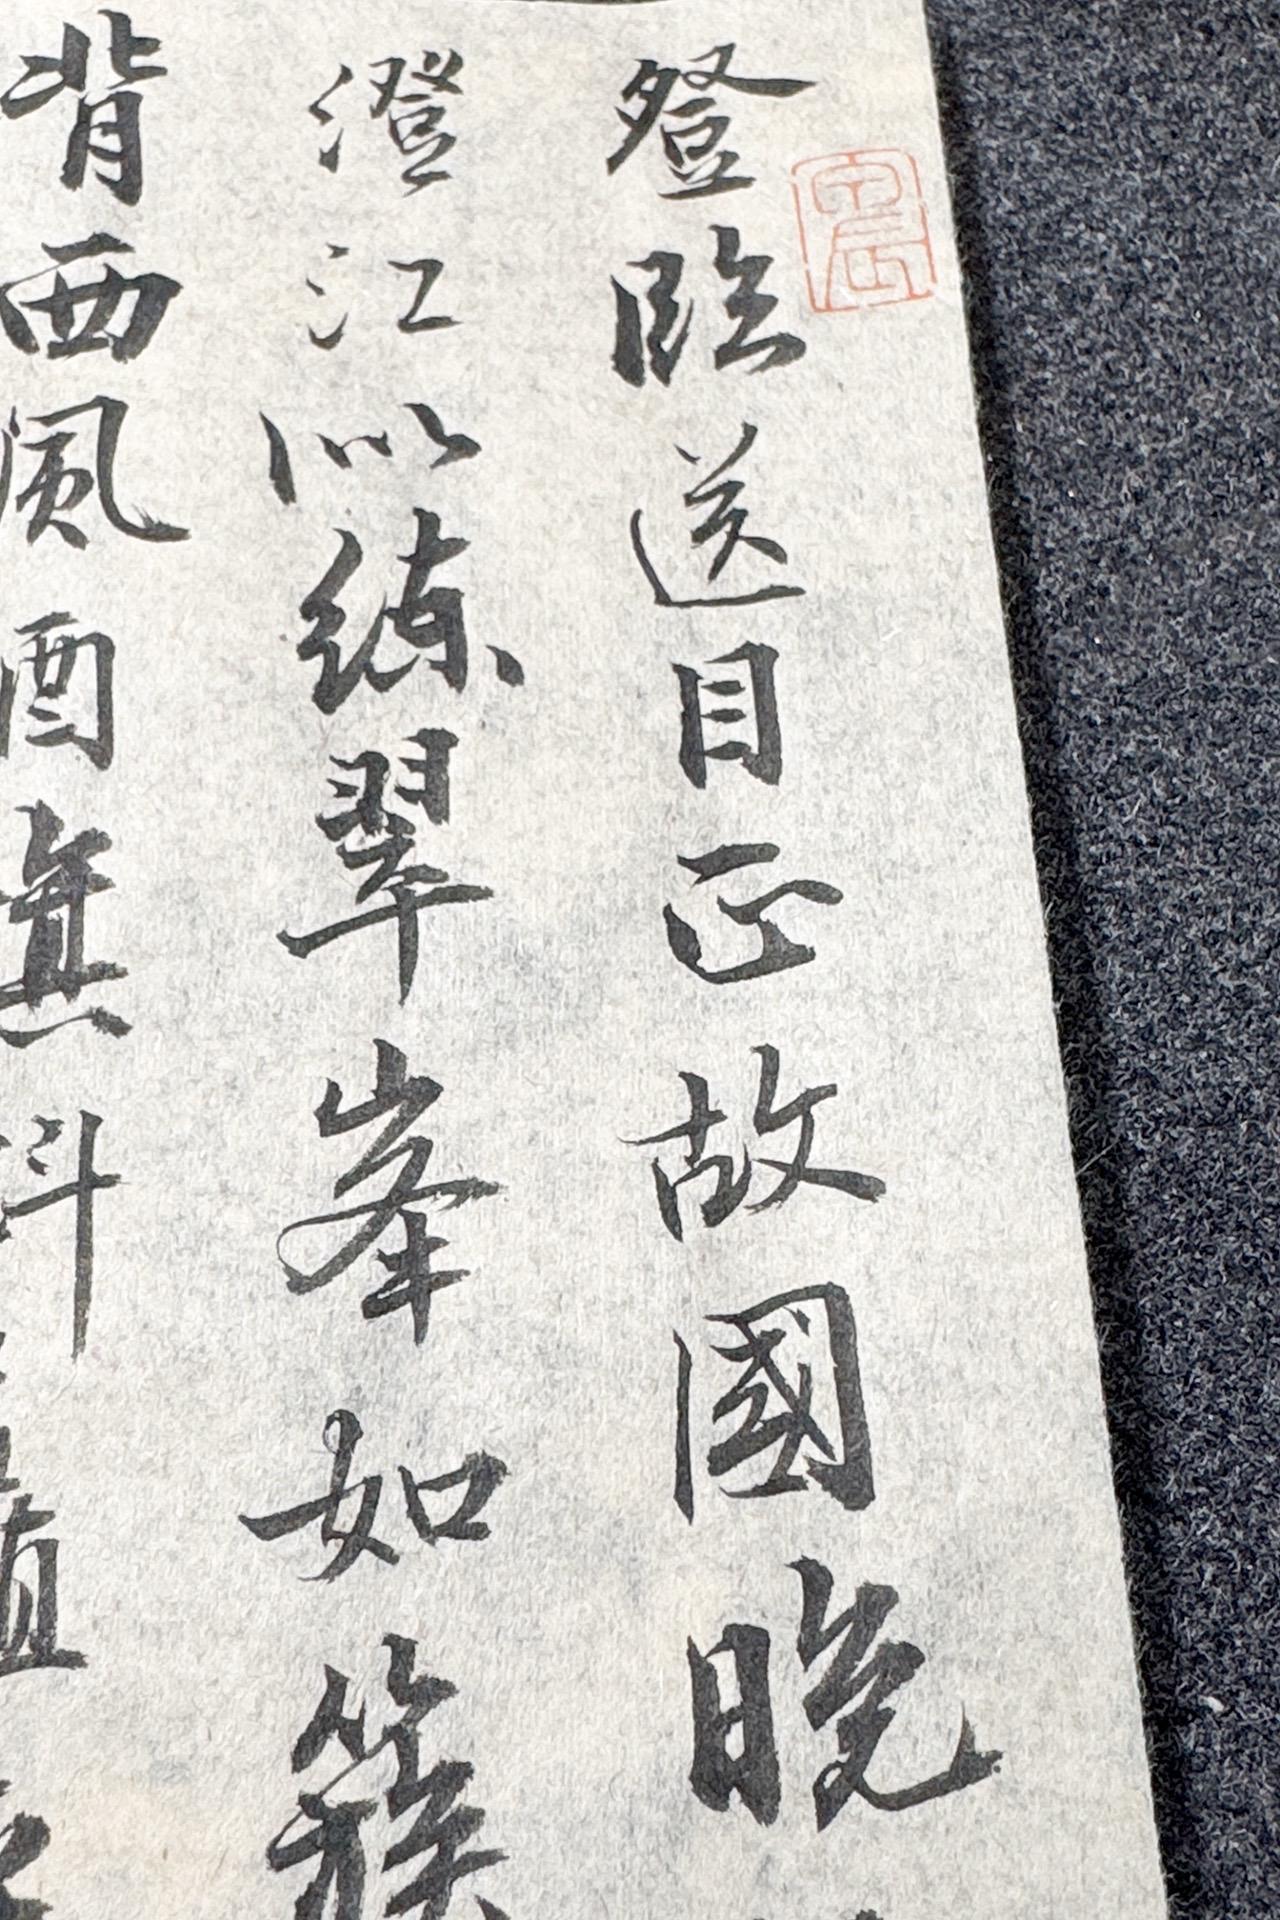 登臨送目正故國晚
澄江似練翠峯如簇
背西風酒旗斜矗